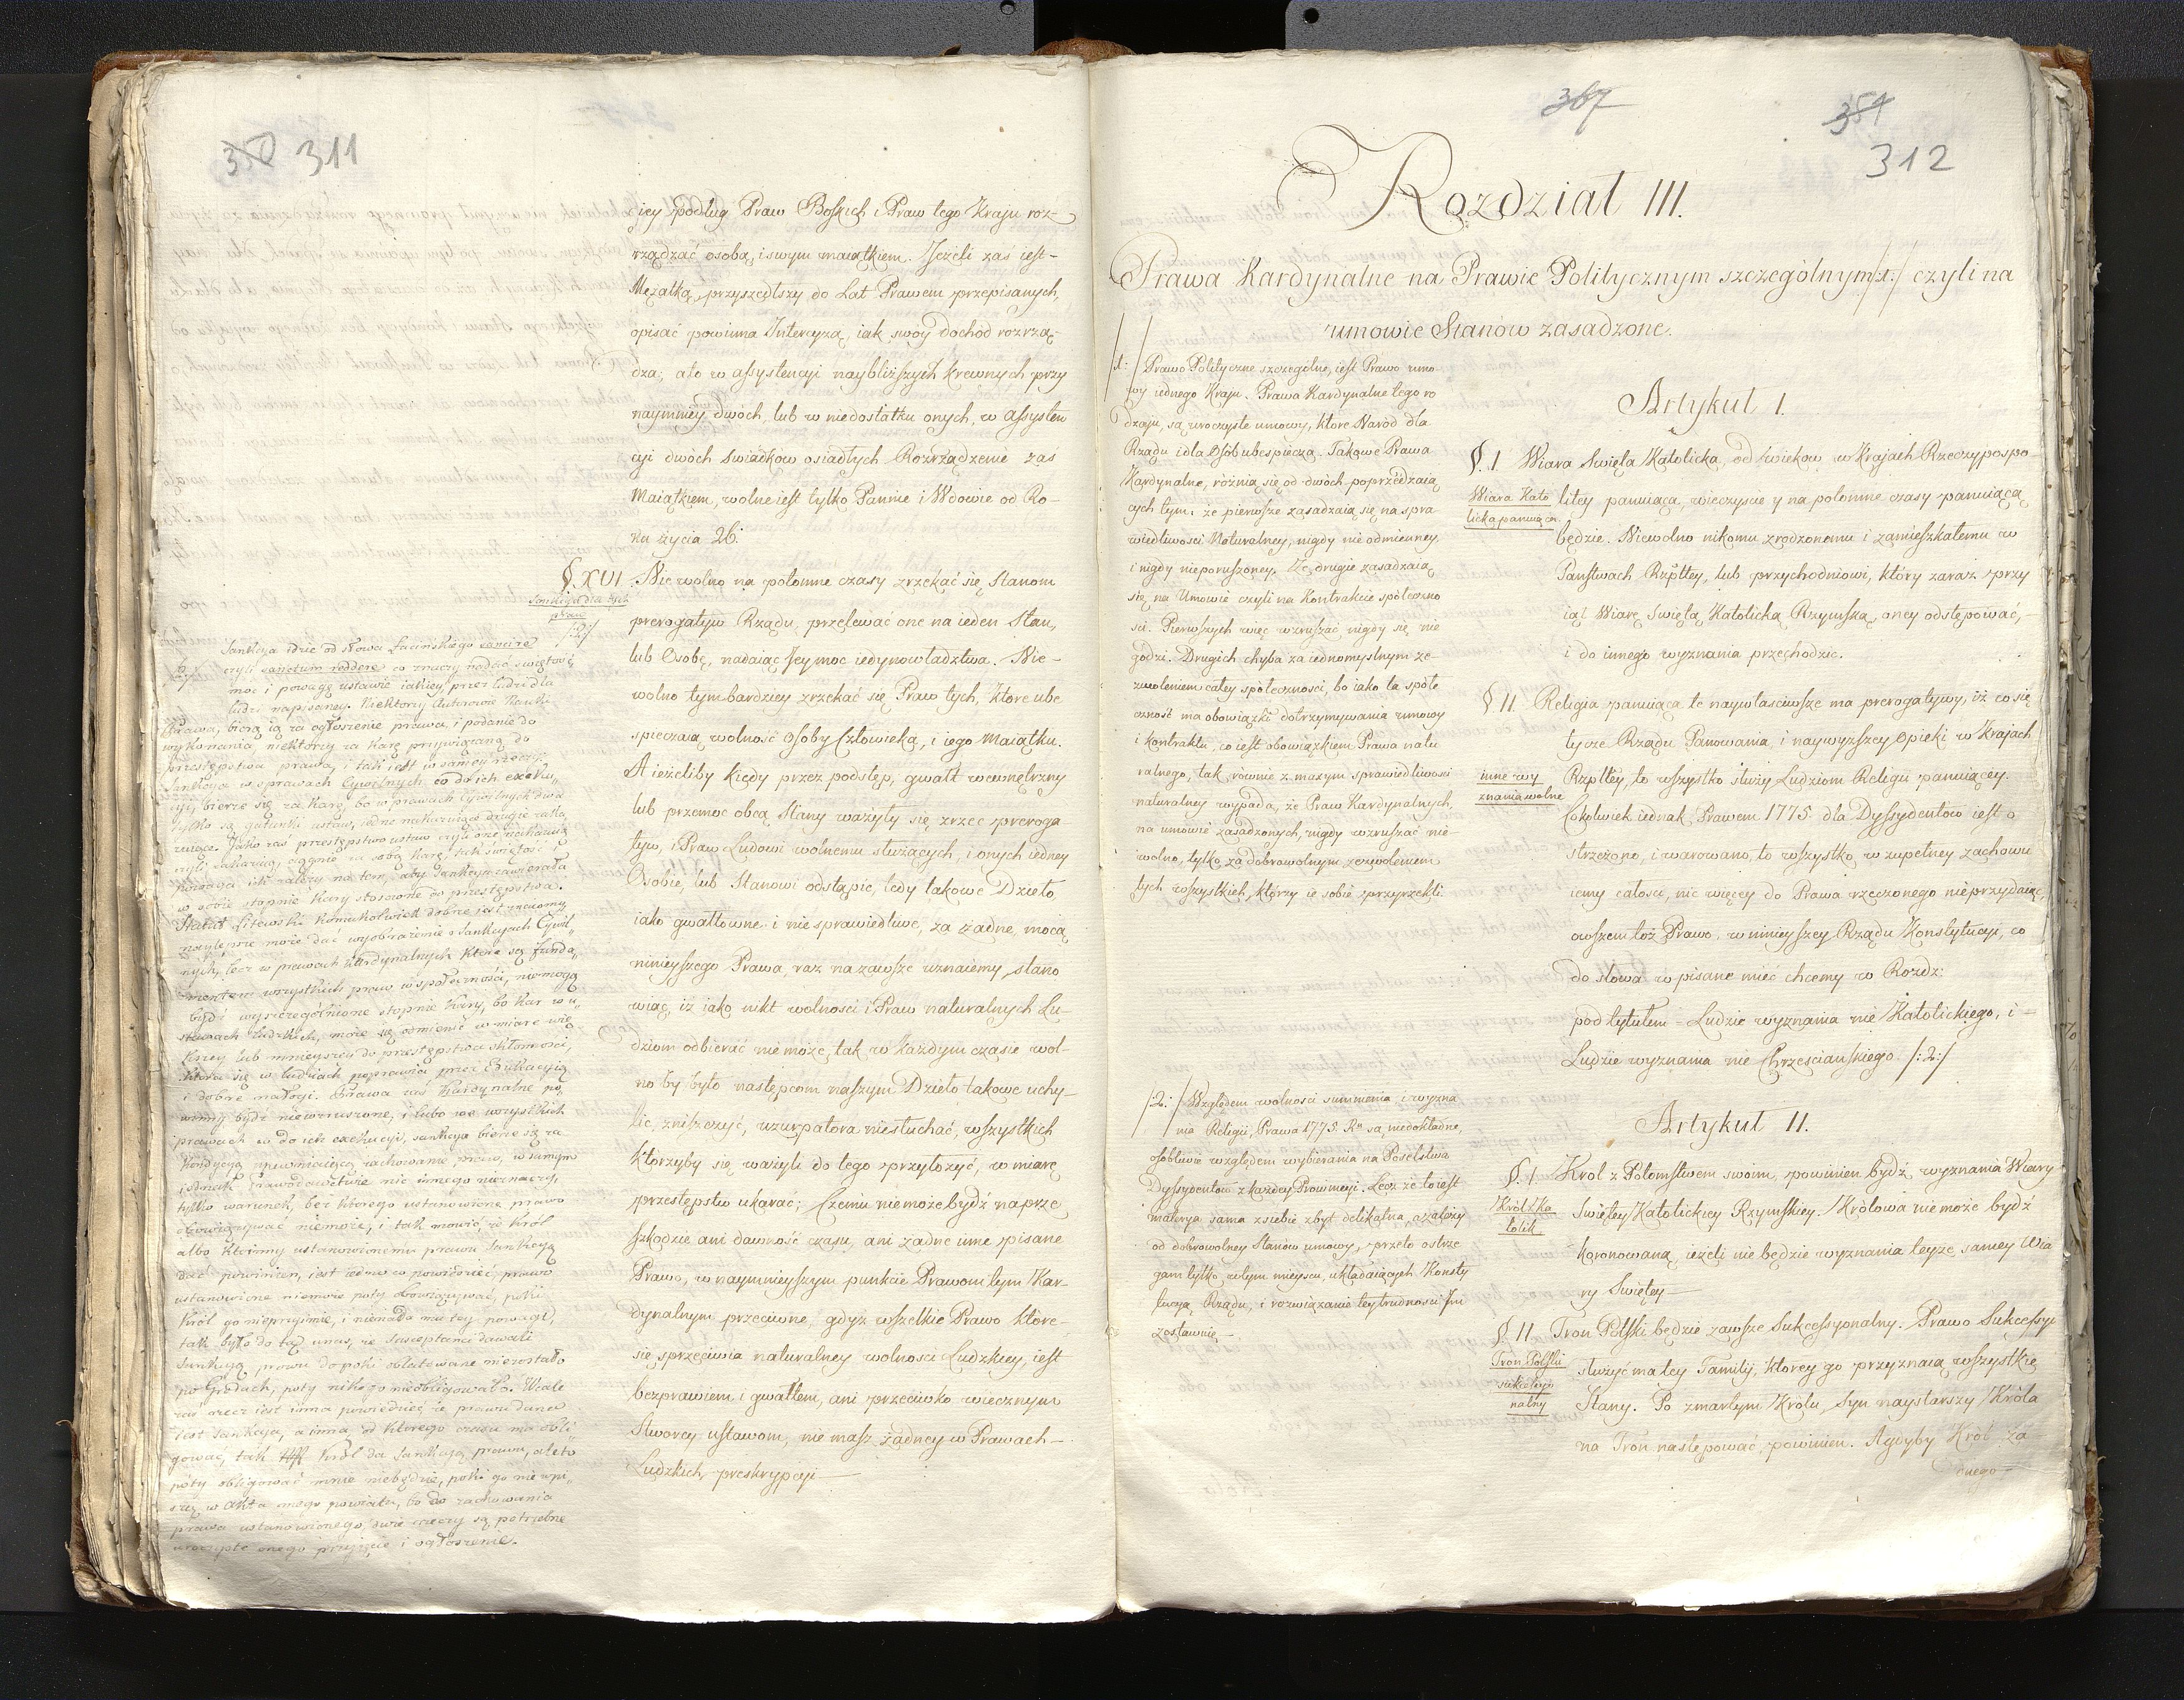 350 311
iey podług Praw Boskich i Praw tego Kraju roz-
rządzać osobą, i swym maiątkiem. Jeżeli zaś iest-
Mężatką, przyszedłszy do Lat Prawem przepisanych,
opisać powinna Intercyzą, iak swoy dochod rozrzą-
dza; a to w assystencyi naybliższych krewnych przy
naymniey dwóch, lub w niedostatku onych, w assysten
cyi dwóch swiadków osiadłych Rozrządzenie zaś
Maiątkiem, wolne iest tylko Pannie i Wdowie od Ro-
ku życia 26.
§. XVI. Nie wolno na potomne czasy zrzekać się Stanom
Sankcya dla tych
praw
/:2:/
prerogatyw Rządu, przelewać one na ieden Stan,
lub Osobę, nadaiąc Jey moc iedynowładztwa. Nie-
wolno tym bardziey zrzekać się Praw tych, ktore ube
spieczaią wolność Osoby Człowieka, i iego Maiątku.
A ieżeliby kiedy przez podstęp, gwałt wewnętrzny
lub przemoc obcą Stany ważyły się zrzec preroga-
tyw, i Praw Ludowi wolnemu służących, i onych iedney
Osobie, lub Stanowi odstąpić, tedy takowe Dzieło,
iako gwałtowne i nie sprawiedliwe, za żadne, mocą
ninieyszego Prawa, raz na zawsze uznaiemy, stano
wiąc, iż iako nikt wolności i Praw naturalnych Lu-
dziom odbierać nie może, tak w każdym czasie wol-
no by było następcom naszym Dzieło takowe uchy-
lić, zniszczyć, uzurpatora niesłuchać, wszystkich
ktorzyby się ważyli do tego przyłożyć, w miarę
przestępstw ukarać; Czemu nie może bydź na prze
szkodzie ani dawność czasu, ani żadne inne pisane
Prawo, w naymnieyszym punkcie Prawom tym Kar-
dynalnym przeciwne, gdyż wszelkie Prawo ktore-
się sprzeciwia naturalney wolności Ludzkiey, iest
bezprawiem i gwałtem, ani przeciwko wiecznym
Stworcy ustawom, nie masz żadney w Prawach-
Ludzkich preskrypcyi-
Sankcya idzie od słowa Łacińskiego sancire
czyli sanctum reddere co znaczy nadać świętość
moc i powagę ustawie iakiey przez ludzi dla
ludzi napisaney. Niektorzy Autorowie Nauki
Prawa, biorą ią za ogłoszenie prawa, i podanie do
wykonania, niektorzy za karę przywiązaną do
przestępstwa prawa, i tak iest w samey rzeczy.
Sankcya w sprawach Cywilnych co do ich exeku„
cyi, bierze się za karę, bo w prawach Cywilnych dwa
tylko są gatunki ustaw, iedne nakazuiące drugie zaka„
zuiące. Jako zaś przestępstwo ustaw czyli one nakazuią
czyli zakazuią, ciągnie za sobą karę, tak świętość i
powaga ich zależy na tem, aby Sankcya zawierała
w sobie stopnie kary stosowne do przestępstwa.
Statut Litewski komukolwiek dobrze iest znaiomy
naylepsze może dać wyobrażenie o Sankcyach Cywil„
nych, lecz w prawach kardynalnych które są funda„
mentem wszystkich praw w społeczności, nie mogą
bydź wyszczególnione stopnie kary, bo kar w u„
stawach ludzkich, może się odmienić w miarę wię„
kszey lub mnieyszey do przestępstwa skłonności,
ktora się w ludziach poprawia przez Edukacyią
i dobre nałogi. Prawa zaś Kardynalne po„
winny bydź niewzruszone, i lubo we wszystkich
prawach co do ich exekucyi, sankcya bierze się za
kondycyą upewniaiącą zachowanie praw, w samym
iednak Prawodawctwie nic innego nieznaczy,
tylko warunek, bez ktorego ustanowione prawo
obowiązywać niemoże, i tak mowić, że Król
albo ktoinny ustanowionemu prawu Sankcyą
dać powinien, iest iedno co powiedzieć, prawo
ustanowione niemoże poty obowiązywać, poki
Król go nieprzyimie, i nienada mu tey powagi,
tak było do tąd u nas, że Susceptanci dawali
Sankcyą, prawu dopoki oblatowane niezostało
po Grodach, poty nikogo nieobligowało. Wcale
zaś rzecz iest inna powiedzieć że prawu dana
iest Sankcya, a inna od ktorego czasu ma obli„
gować, tak Król da Sankcyą prawu, ale to
poty obligować mnie niebędzie, poki go nie wpi„
szą w Akta mego powiatu, bo do zachowania
prawa ustanowionego, dwie rzeczy są potrzebne
uroczyste onego przyięcie i ogłoszenie.
367
351
312
Rozdział III.
Prawa Kardynalne na Prawie Politycznym szczególnym /:1:/ czyli na
umowie Stanów zasadzone.
/:1:/ Prawo Polityczne szczególne, iest Prawo umo-
wy iednego Kraju. Prawa Kardynalne tego ro
dzaju, są uroczyste umowy, ktore Naród dla
Rządu i dla Osób ubespiecza. Takowe Prawa
Kardynalne, różnią się od dwóch poprzedzaią
cych tym: że pierwsze zasadzaią się na spra
wiedliwosci Naturalney, nigdy nie odmienney
i nigdy nieporuszoney. Że drugie zasadzaią
się na Umowie czyli na Kontrakcie społeczno
sci. Pierwszych więc wzruszać nigdy się nie
godzi. Drugich chyba za iednomyslnym ze-
zwoleniem całey społeczności, bo iako ta społe
czność ma obowiązki dotrzymywania umowy
i kontraktu, co iest obowiązkiem Prawa natu
ralnego, tak równie z maxym sprawiedliwosci
naturalney wypada, że Praw Kardynalnych,
na umowie zasadzonych, nigdy wzruszać nie-
wolno, tylko za dobrowolnym zezwoleniem
tych wszystkich, ktorzy ie sobie przyrzekli.
Artykuł I.
§. I. Wiara Swięta Katolicka, od wieków w Krajach Rzeczypospo-
Wiara Kato
licka panuiąca.
litey panuiąca, wieczyscie y na potomne czasy panuiącą
będzie. Niewolno nikomu zrodzonemu i zamieszkałemu w
Państwach Rzpltey, lub przychodniowi, który zaraz przy
iął Wiarę Swiętą Katolicką Rzymską, oney odstępować,-
i do innego wyznania przechodzić.
§ II. Religia panuiąca te naywłasciwsze ma prerogatywy, iż co się
tycze Rządu Panowania, i naywyższey Opieki w Krajach
inne wy
znania wolne
Rzpltey, to wszystko służy Ludziom Religii panuiącey.
Cokolwiek iednak Prawem 1775. dla Dyssydentów iest o
strzeżono, i warowano, to wszystko w zupełney zachowu
iemy całosci, nic więcey do Prawa rzeczonego nie przydaiąc,
owszem toż Prawo, w ninieyszey Rządu Konstytucyi, co
do słowa wpisane mieć chcemy w Rozdz:
pod tytułem = Ludzie wyznania nie Katolickiego, i =
Ludzie wyznania nie Chrzesciańskiego. /:2:/
/:2:/ Względem wolności sumnienia i wyzna
nia Religii, Prawa 1775. Ru są niedokładne,
osobliwie względem wybierania na Poselstwa
Dyssydentów z każdey Prowincyi. Lecz że to iest
materya sama z siebie zbyt delikatna, a zależy
od dobrowolney Stanów umowy, przeto ostrze
gam tylko w tym mieyscu, układaiących Konsty
tucyą Rządu, i rozwiązanie tey trudności Jm
zostawuię.-
Artykuł II.
§. I. Krol z Potomstwem swoim, powinien bydź wyznania Wiary
Król Ka
tolik
Swiętey Katolickiey Rzymskiey. Królowa nie może bydź
koronowaną, ieżeli nie będzie wyznania teyże samey Wia
ry Swiętey-
§. II. Tron Polski będzie zawsze Sukcessyonalny. Prawo Sukcessyi
Tron Polski
sukcessyo
nalny
służyć ma tey Familij, ktorey go przyznaią wszystkie
Stany. Po zmarłym Królu, Syn naystarszy Króla
na Tron następować powinien. A gdyby Krol ża
dnego-